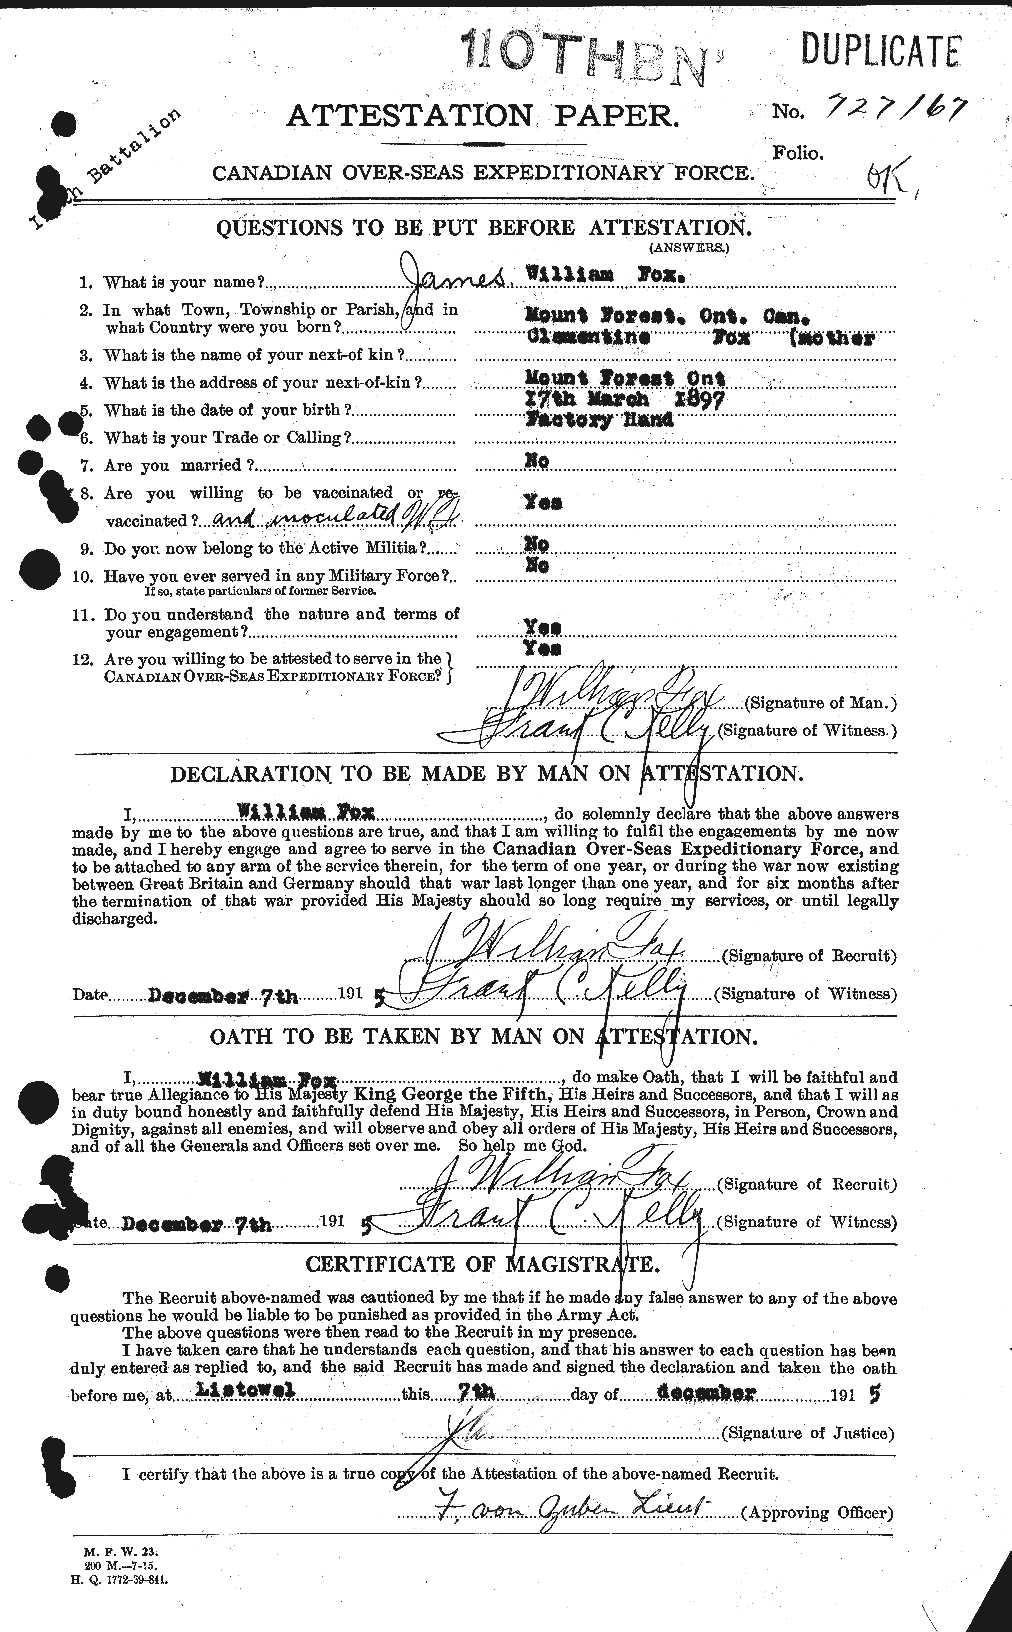 110TH BN
DUPLICATE
ATTESTATION PAPER.
No. 727167
Folio.
Battalion
CANADIAN OVER-SEAS EXPEDITIONARY FORCE.
OK.
QUESTIONS TO BE PUT BEFORE ATTESTATION.
(ANSWERS.)
1. What is your name? James William Fox.
2. In what Town, Township or Parish, and in
what Country were you born? Mount Forest. Ont. Can.
Clementine Fox (mother
3. What is the name of your next-of kin?
4. What is the address of your next-of-kin? Mount Forest Ont
5. What is the date of your birth? 17th March 1897
6. What is your Trade or Calling? Factory Hand
7. Are you married? No
8. Are you willing to be vaccinated or re-
vaccinated? and inoculated Yes
9. Do you now belong to the Active Militia? No
10. Have you ever served in any Military Force? No
If so, state particulars of former Service.
11. Do you understand the nature and terms of
your engagement? Yes
12. Are you willing to be attested to serve in the Yes
CANADIAN OVER-SEAS EXPEDITIONARY FORCE?
J William Fox (Signature of Man.)
Frank C. Kelly (Signature of Witness.)
DECLARATION TO BE MADE BY MAN ON ATTESTATION.
I, William Fox, do solemnly declare that the above answers
made by me to the above questions are true, and that I am willing to fulfil the engagements by me now
made, and I hereby engage and agree to serve in the Canadian Over-Seas Expeditionary Force, and
to be attached to any arm of the service therein, for the term of one year, or during the war now existing
between Great Britain and Germany should that war last longer than one year, and for six months after
the termination of that war provided His Majesty should so long require my services, or until legally
discharged.
J William Fox (Signature of Recruit)
Date December 7th 1915 Frank C. Kelly (Signature of Witness)
OATH TO BE TAKEN BY MAN ON ATTESTATION.
I, William Fox, do make Oath, that I will be faithful and
bear true Allegiance to His Majesty King George the Fifth, His Heirs and Successors, and that I will as
in duty bound honestly and faithfully defend His Majesty, His Heirs and Successors, in Person, Crown and
Dignity, against all enemies, and will observe and obey all orders of His Majesty, His Heirs and Successors,
and of all the Generals and Officers set over me. So help me God.
J William Fox (Signature of Recruit)
Date December 7th 1915 Frank C. Kelly (Signature of Witness)
CERTIFICATE OF MAGISTRATE.
The Recruit above-named was cautioned by me that if he made any false answer to any of the above
questions he would be liable to be punished as provided in the Army Act.
The above questions were then read to the Recruit in my presence.
I have taken care that he understands each question, and that his answer to each question has been
duly entered as replied to, and the said Recruit has made and signed the declaration and taken the oath
before me, at Listowel this 7th day of december 1915
(Signature of Justice)
I certify that the above is a true copy of the Attestation of the above-named Recruit.
F. von Zuben Lieut (Approving Officer)
M. F. W. 23.
200 M.—7-15.
H. Q. 1772-39-841.